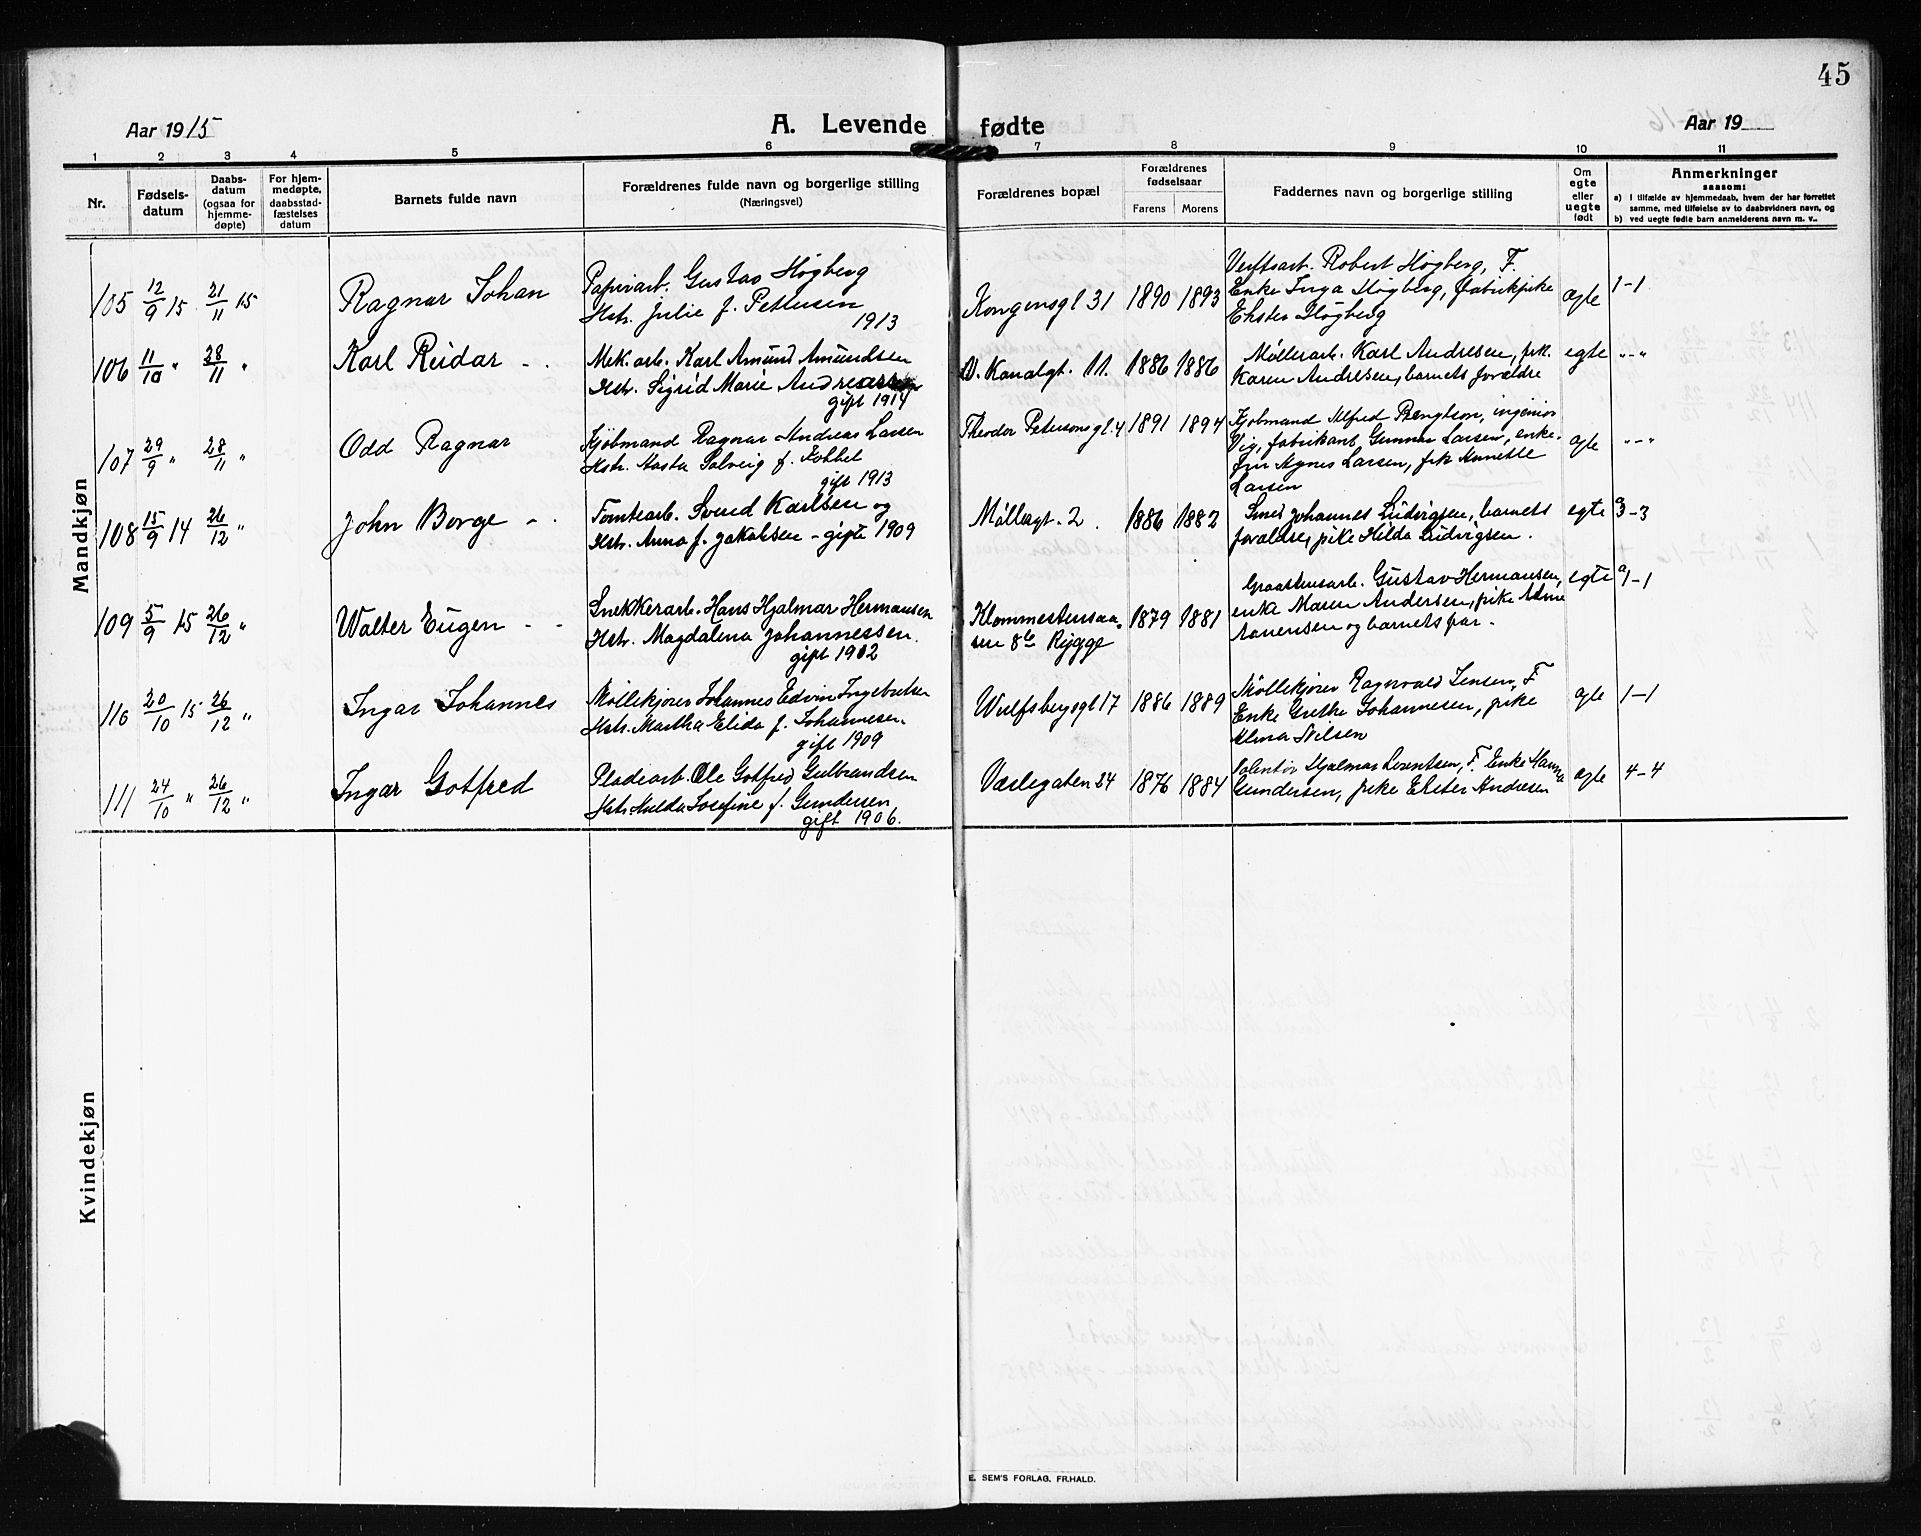 45
Aar 1915
A. Levende fødte
Aar 19
1 2 3 4 5 6 7 8 9 10 11
Nr.
Fødsels-
datum
Daabs-
datum
(ogsaa for
hjemme-
døpte)
For hjem-
medøpte,
daabsstad-
fæstelses
datum
Barnets fulde navn
Forældrenes fulde navn og borgerlige stilling
(Næringsvei)
Forældrenes bopæl
Forældrenes
fødselsaar
Farens Morens
Faddernes navn og borgerlige stilling
Om
egte
eller
uegte
født
Anmerkninger
saasom:
a) i tilfælde av hjemmedaab, hvem der har forrettet
samme, med tilføielse av to daabsvidners navn, og
b) ved uegte fødte barn anmelderens navn m. v..
Mandkjøn
105 12/9 15 21/11 15
Ragnar Johan
Papirarb. Gustav Høgberg
Hstr. Julie f. Pettersen
1913
Kongensgt 31
1890 1893
Verftsarb. Robert Høgberg, F.
Enke Inga Høgberg, fabrikpike
Ekster Høgberg
egte
1-1
106 11/10 " 28/11 "
Karl Reidar - -
Mek. arb. Karl Amund Amundsen
Hstr. Sigrid Marie Andreassen
gift 1914
N. Kanalgt. 11.
1886 1886
Møllerarb. Karl Andresen, frk.
Karen Andresen, barnets forældre
egte
"-"
107 29/9 " 28/11 "
Odd Ragnar
Kjøbmand Ragnar Andreas Larsen
Hstr. Aasta Solveig f.
gift 1913
Theodor Petersonsgt. 4
1891 1894
Kjøbmand Alfred Bengtson, ingeniør
Vig, fabrikant Gunnar Larsen, enke-
fru Agnes Larsen, frk Annette
Larsen
egte
"-"
108 15/9 14 26/12 "
John Borge - -
Tomtearb. Svend Karlsen og
Hstr. Anna f. Jakobsen - gifte 1909
Møllergt. 2.
1886 1882
Smed Johannes Ludvigsen, barnets
forældre, pike Hilda Ludvigsen.
egte
3-3
109 5/9 15 26/12 "
Walter Eugen - -
Snekkerarb. Hans Hjalmar Hermansen
Hstr. Magdalena Johannessen.
gift 1902
Klommestensaa-
sen 8b Rygge
1879 1881
Graastensarb. Gustav Hermansen,
enke Maren Andersen, pike
og barnets far.
egte
1-1
110 20/10 15 26/12 "
Ingar Johannes
Møllekjører Johannes Edvin Ingebretsen
Hstr. Martha Elida f. Johannesen.
gift 1909
Wulfsbergsgt 17
1886 1889
Møllekjører Ragnvald Jensen, F
Enke Grethe Johannesen, pike
Alma Nilsen
egte
1-1
111 24/10 " 26/12 "
Ingar Gotfred
Pladearb. Ole Gotfred Gulbrandsen
Hstr. Hulda Josefine f. Gundersen
gift 1906.
Værlegaten 24
1876 1884
Hjalmar Lorentsen, F. Enke Hanna
Gundersen, pike Ekster Andresen
egte
4-4
Kvindekjøn
E. SEM'S FORLAG, FR.HALD.